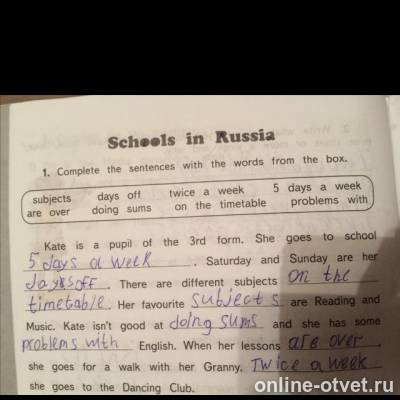 Schools in Russia
1. Complete the sentences with the words from the box.
subjects days off twice a week 5 days a week
are over doing sums on the timetable problems with
Kate is a pupil of the 3rd form. She goes to school
5 days a week. Saturday and Sunday are her
days off. There are different subjects on the
timetable. Her favourite subjects are Reading and
Music. Kate isn't good at doing sums and she has some
problems with English. When her lessons are over,
she goes for a walk with her Granny. Twice a week
she goes to the Dancing Club.
online-otvet.ru